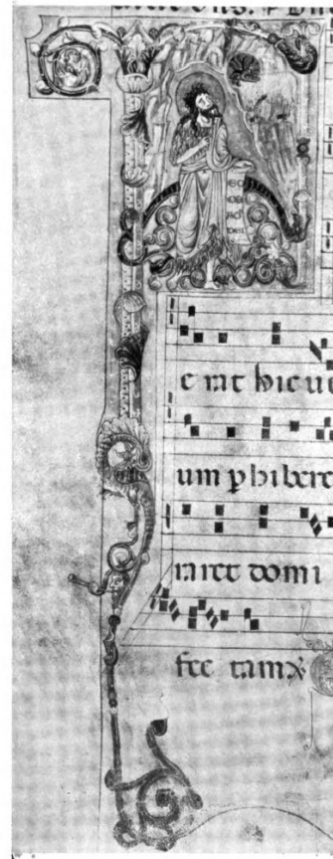 e rat hic ui
um p̱hibere
raret domi
fec tam